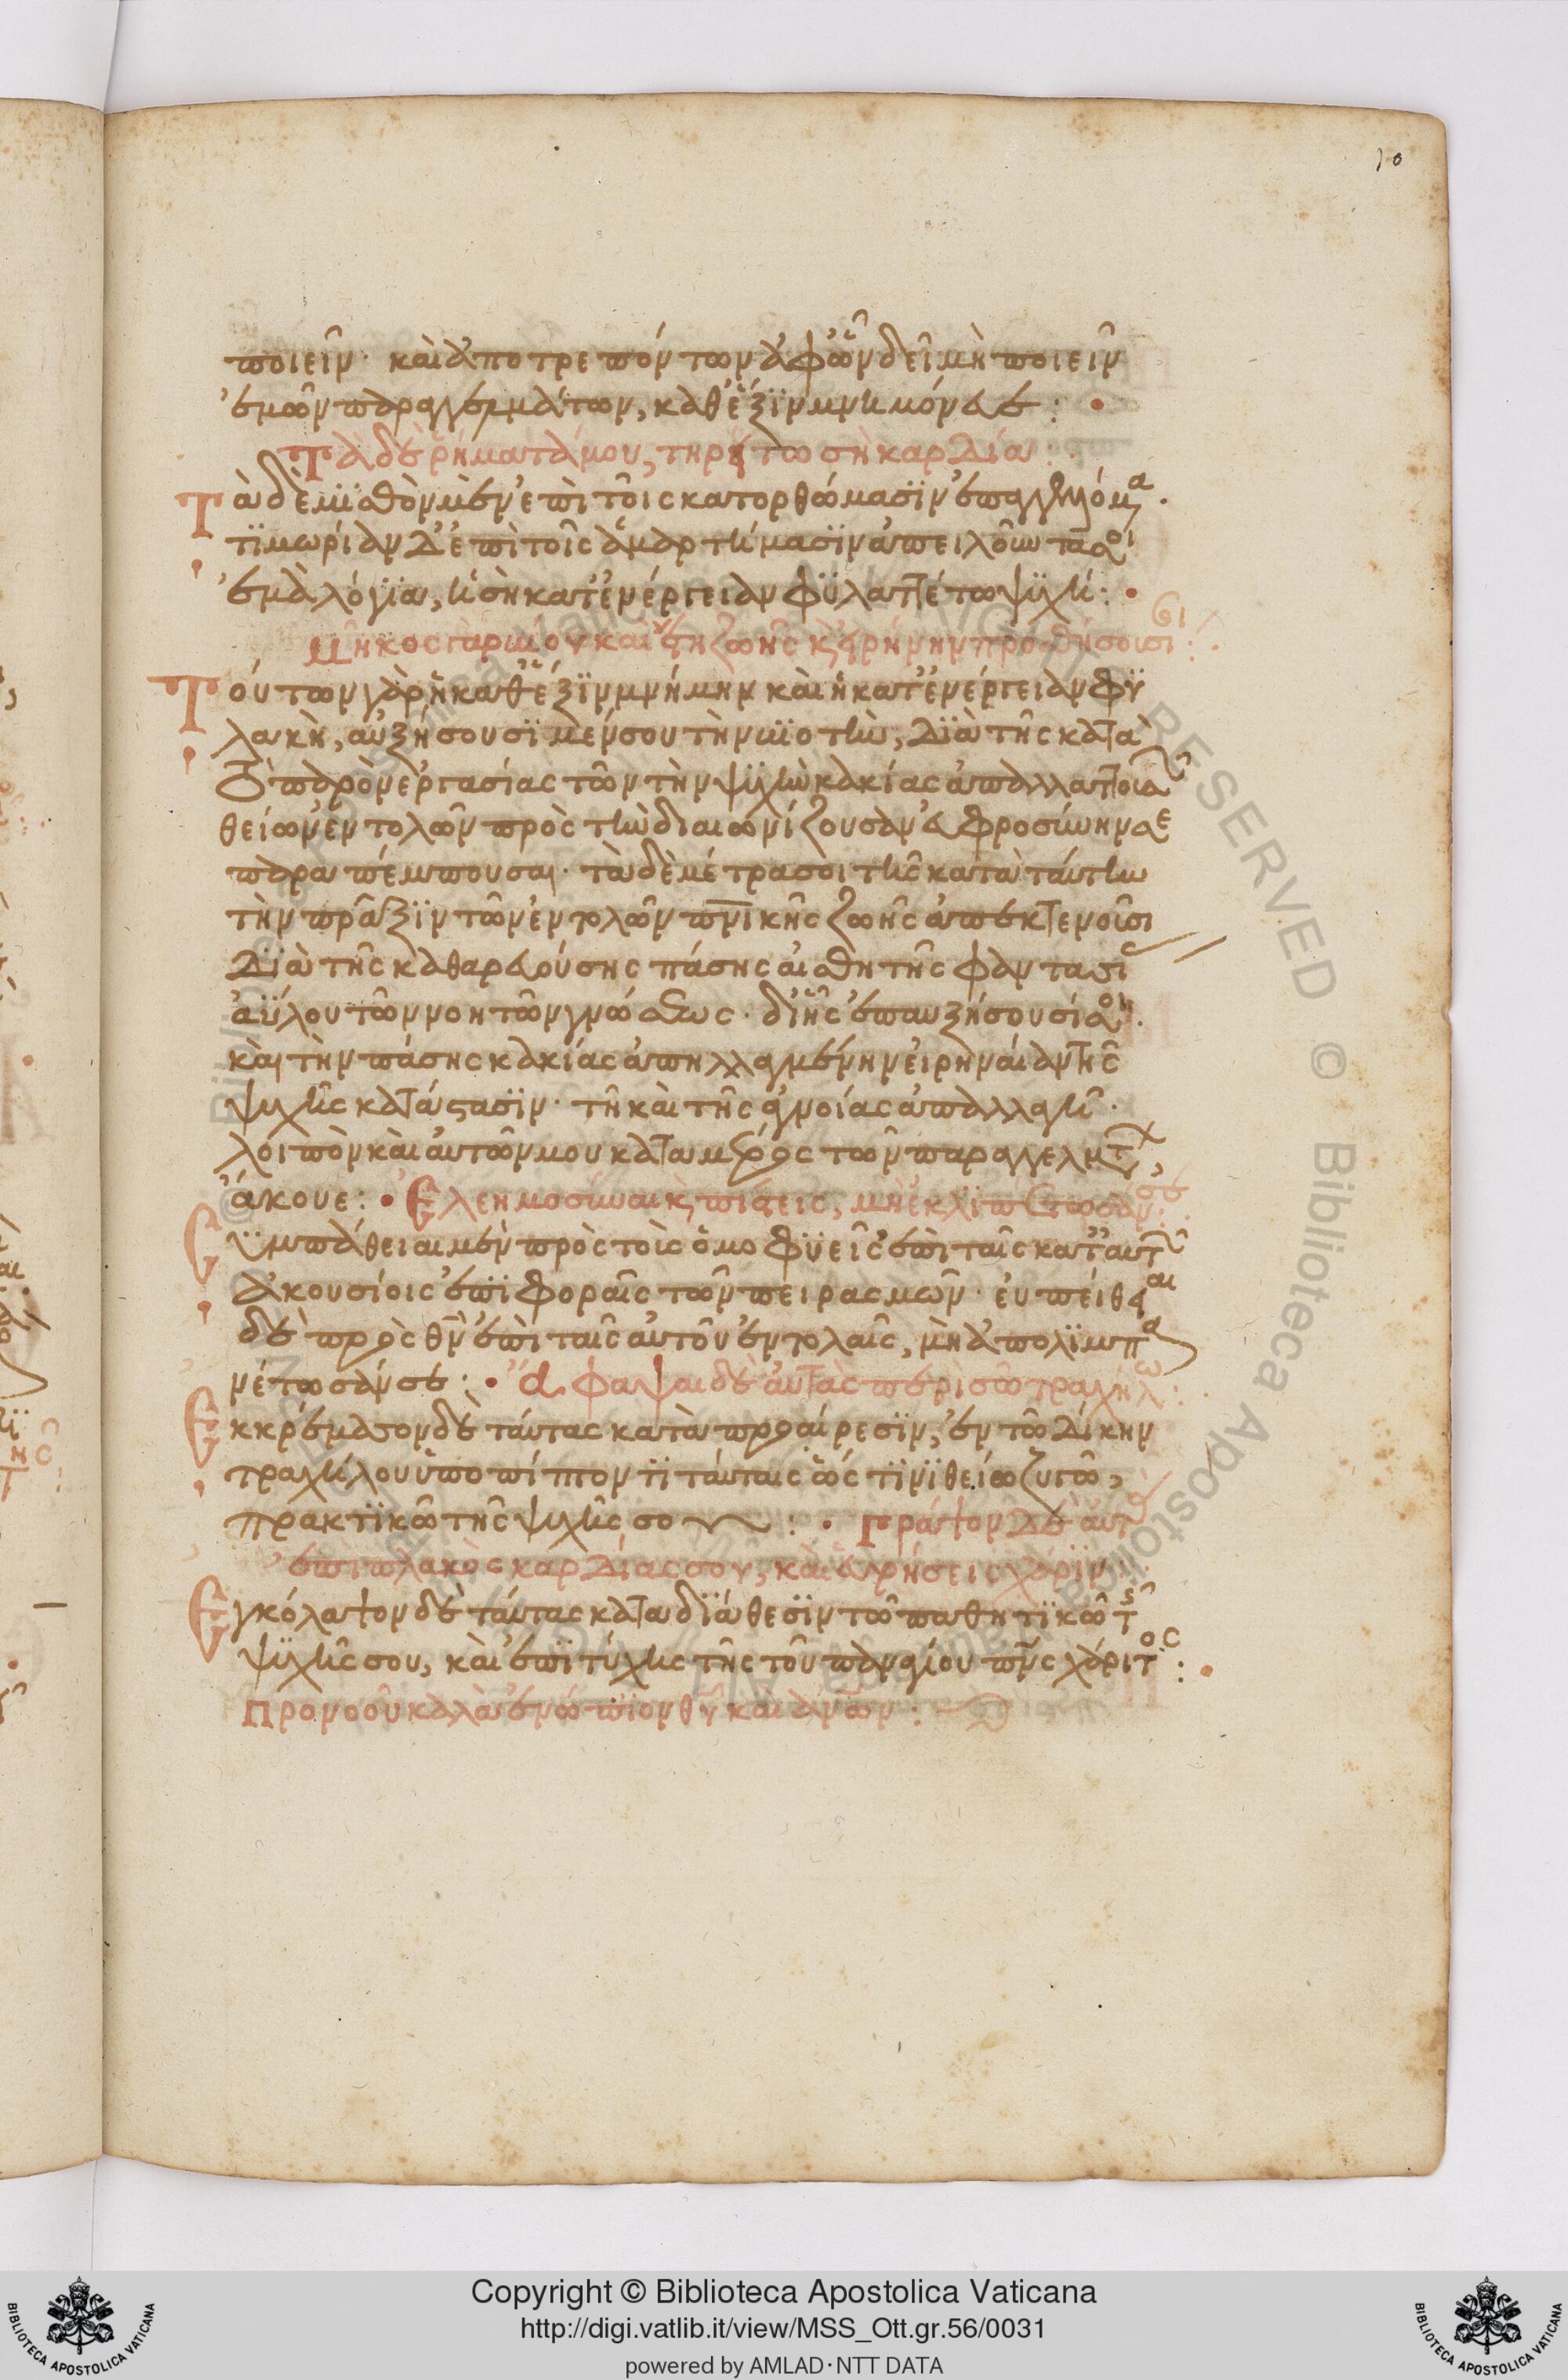 10
ποιεῖν· καὶ ἀποτρεπόντων ἀφ' ὧν δεῖ μὴ ποιεῖν
ἐμῶν παραγγελμάτων, καθ' ἕξιν μνημόνευε:
Τὰ δὲ ῥήματά μου, τηρείτω σὴ καρδία:
Τὰ δὲ μισθὸν μὲν ἐπὶ τοῖς κατορθώμασιν ἐπαγγελλόμενα·
τιμωρίαν δ' ἐπὶ τοῖς ἁμαρτήμασιν ἀπειλοῦντά σοι
ἐμὰ λόγια, ἡ σὴ κατ' ἐνέργειαν φυλαττέτω ψυχή:
Μῆκος γὰρ βίου καὶ ἔτη ζωῆς καὶ εἰρήνην προσθήσουσί σοι:
Τούτων γὰρ ἡ καθ' ἕξιν μνήμη καὶ ἡ κατ' ἐνέργειαν φυ
λακὴ, αὐξήσουσι μέν σου τὴν βιοτὴν, διὰ τῆς κατὰ
τὸ παρὸν ἐργασίας τῶν τὴν ψυχὴν κακίας ἀπαλλαττουσῶν
θείων ἐντολῶν πρὸς τὴν διαιωνίζουσαν εὐφροσύνην σε
παραπέμπουσαι· τὰ δὲ μέτρα σοι τῆς κατὰ ταύτην
τὴν πρᾶξιν τῶν ἐντολῶν πνικῆς ζωῆς ἀπεκτενοῦσι
διὰ τῆς καθαρευούσης πάσης αἰσθητῆς φαντασίας
ἀΰλου τῶν νοητῶν γνώσεως· δι' ἧς ἐπαυξήσουσί σοι
καὶ τὴν πάσης κακίας ἀπηλλαγμένην εἰρηναίαν τῆς
ψυχῆς κατάστασιν· τῇ καὶ τῆς ἀγνοίας ἀπαλλαγῇ·
λοιπὸν καὶ αὐτῶν μου κατὰ μέρος τῶν παραγγελμάτων,
ἄκουε: Ἐλεημοσύναι καὶ πίστεις, μὴ ἐκλιπέτωσάν σε:
Συμπάθειαι μὲν πρὸς τοὺς ὁμοφυεῖς ἐπὶ ταῖς κατ' αὐτῶν
ἀκουσίοις ἐπιφοραῖς τῶν πειρασμῶν· εὐπείθειαι
δὲ πρὸς θν ἐπὶ ταῖς αὐτοῦ ἐντολαῖς, μὴ ἀπολιμπα
νέτωσάν σε: Ἄφαψαι δὲ αὐτὰς περὶ σῷ τραχήλῳ:
Ἐκκρέμασον δὲ ταύτας κατὰ προαίρεσιν, ἐν τῷ δίκην
τραχήλου ὑποπίπτοντι ταύταις ὥς τινι θείῳ ζυγῷ,
πρακτικῷ τῆς ψυχῆς σου: Γράψον δὲ αὐτὰς
ἐπὶ πλακὸς καρδίας σου, καὶ εὑρήσεις χάριν:
Ἐγκόλαψον δὲ ταύτας κατὰ διάθεσιν τῷ παθητικῷ τῆς
ψυχῆς σου, καὶ ἐπιτύχῃς τῆς τοῦ παναγίου πνς χάριτος:
Προνοοῦ καλὰ ἐνώπιον θυ καὶ ἀνων:
© Biblioteca Apostolica Vaticana
Copyright © Biblioteca Apostolica Vaticana
http://digi.vatlib.it/view/MSS_Ott.gr.56/0031
powered by AMLAD·NTT DATA
BIBLIOTECA APOSTOLICA VATICANA
BIBLIOTECA APOSTOLICA VATICANA